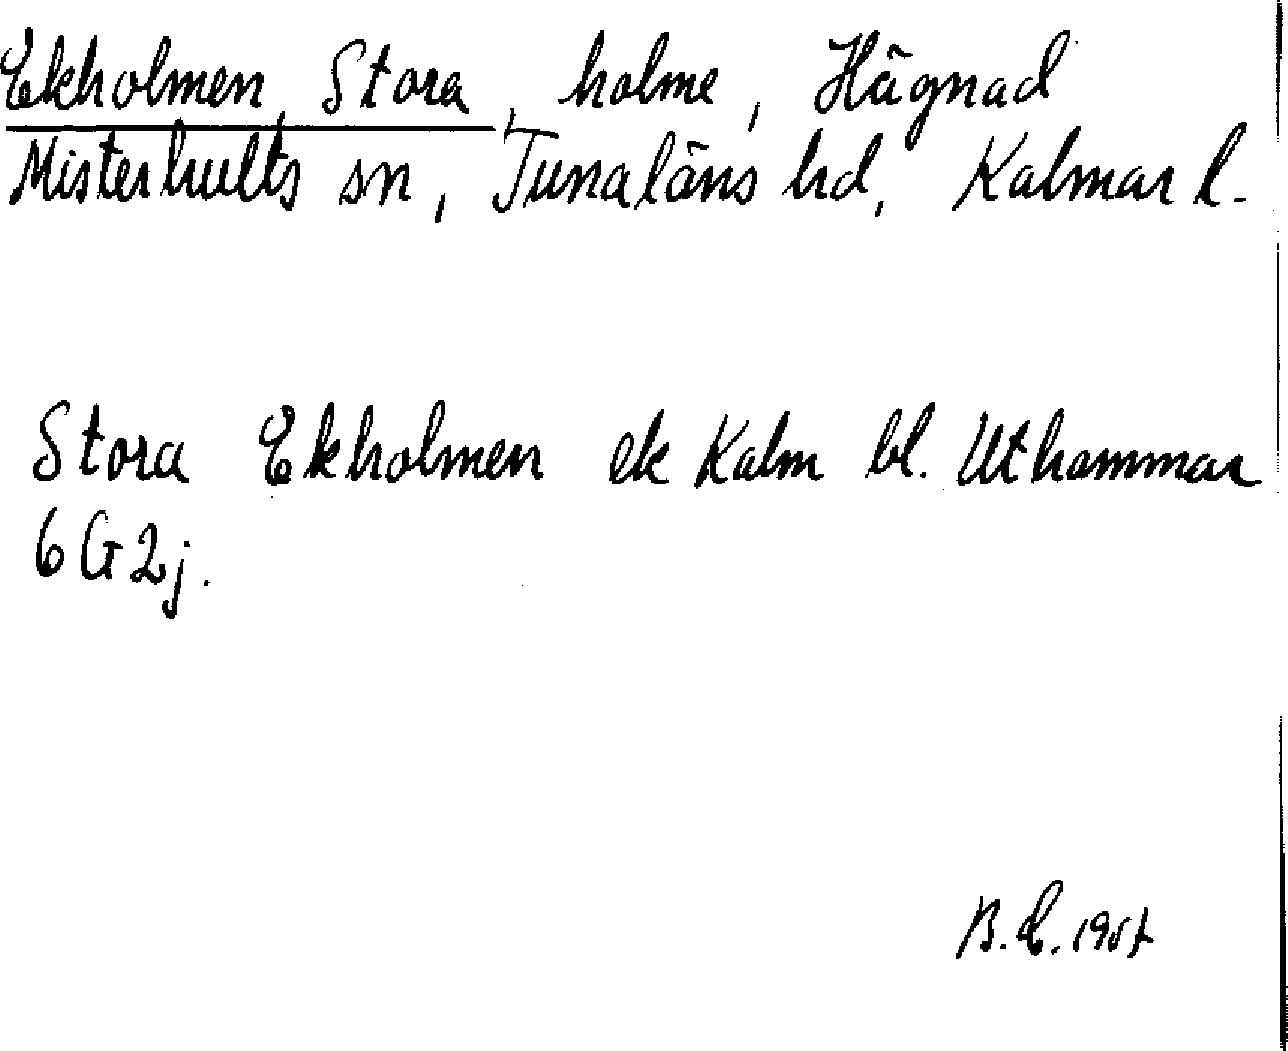 Ekholmen, Stora, holme, Hägnad
Misterhults sn, Tunaläns hd, Kalmar l.
Stora Ekholmen ek Kalm bl. Uthammar
6G2j.
B.E. 1957